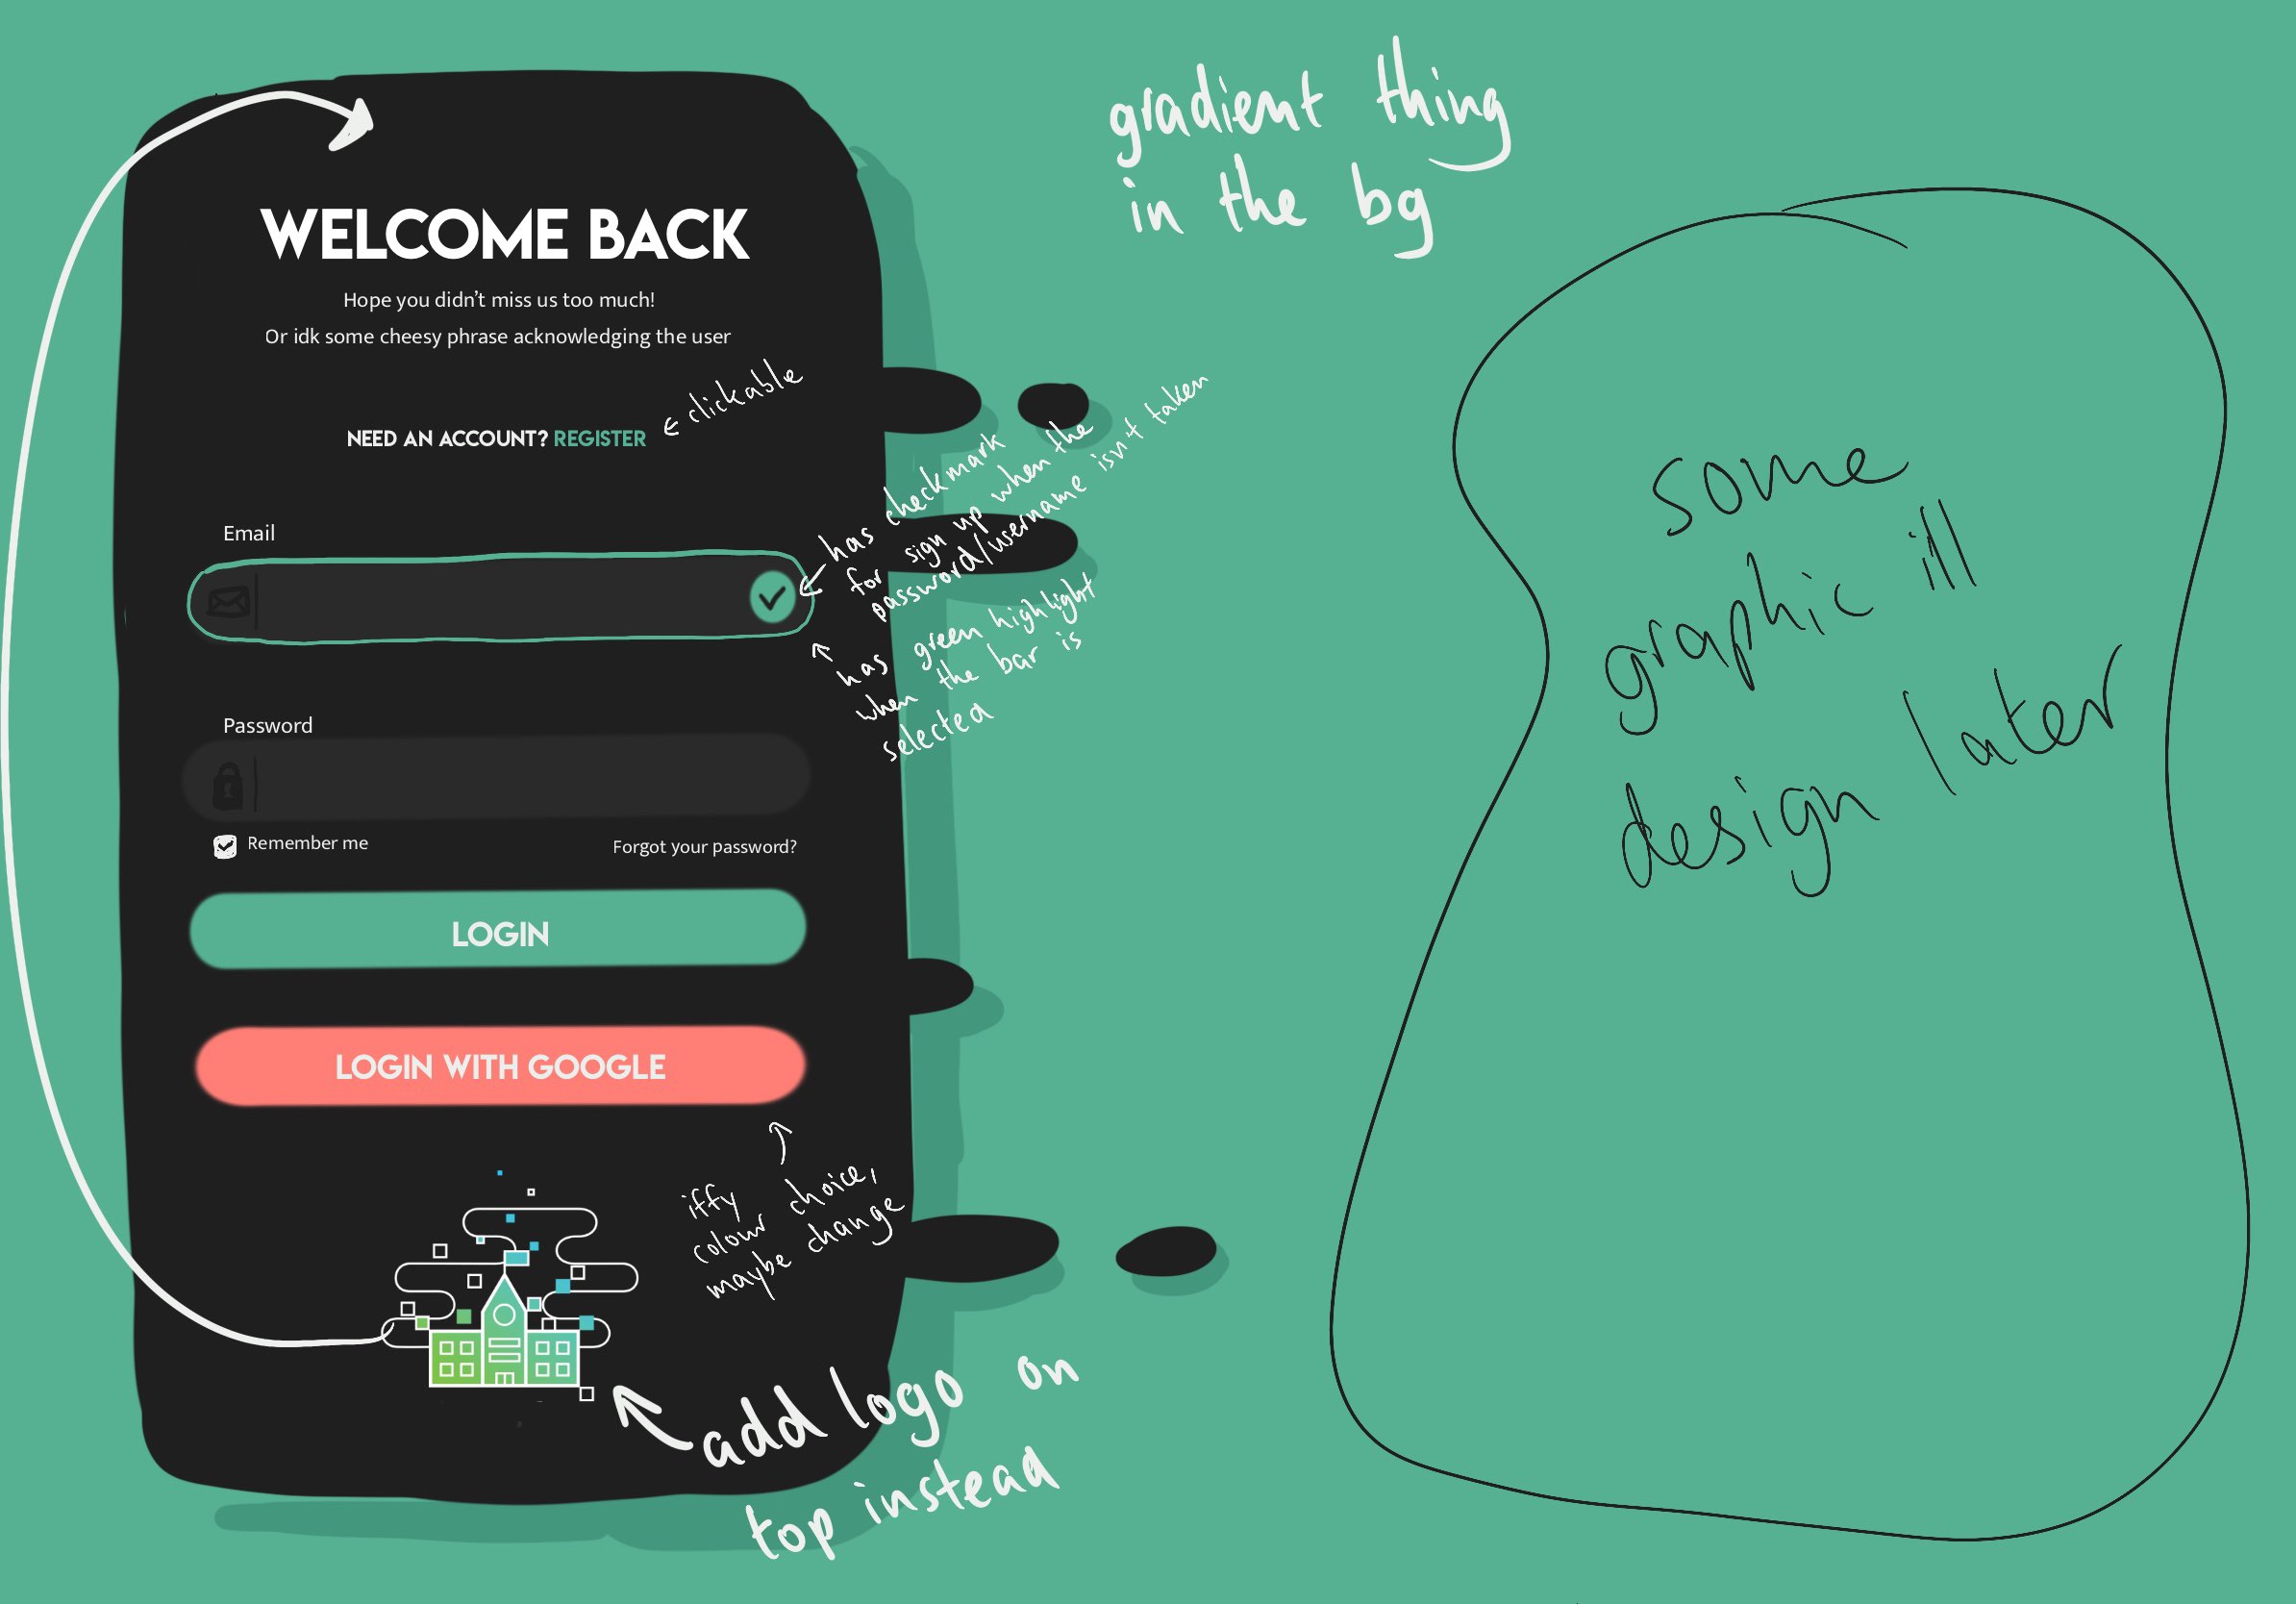 gradient thing
in the bg
WELCOME BACK
Hope you didn't miss us too much!
Or idk some cheesy phrase acknowledging the user
← clickable
NEED AN ACCOUNT? REGISTER
Email
← has checkmark
for sign up when the
password/username isn't taken
↑ has green highlight
when the bar is
selected
Password
Remember me
Forgot your password?
LOGIN
LOGIN WITH GOOGLE
iffy
colour choice,
maybe change
add logo on
top instead
some
graphic ill
design later